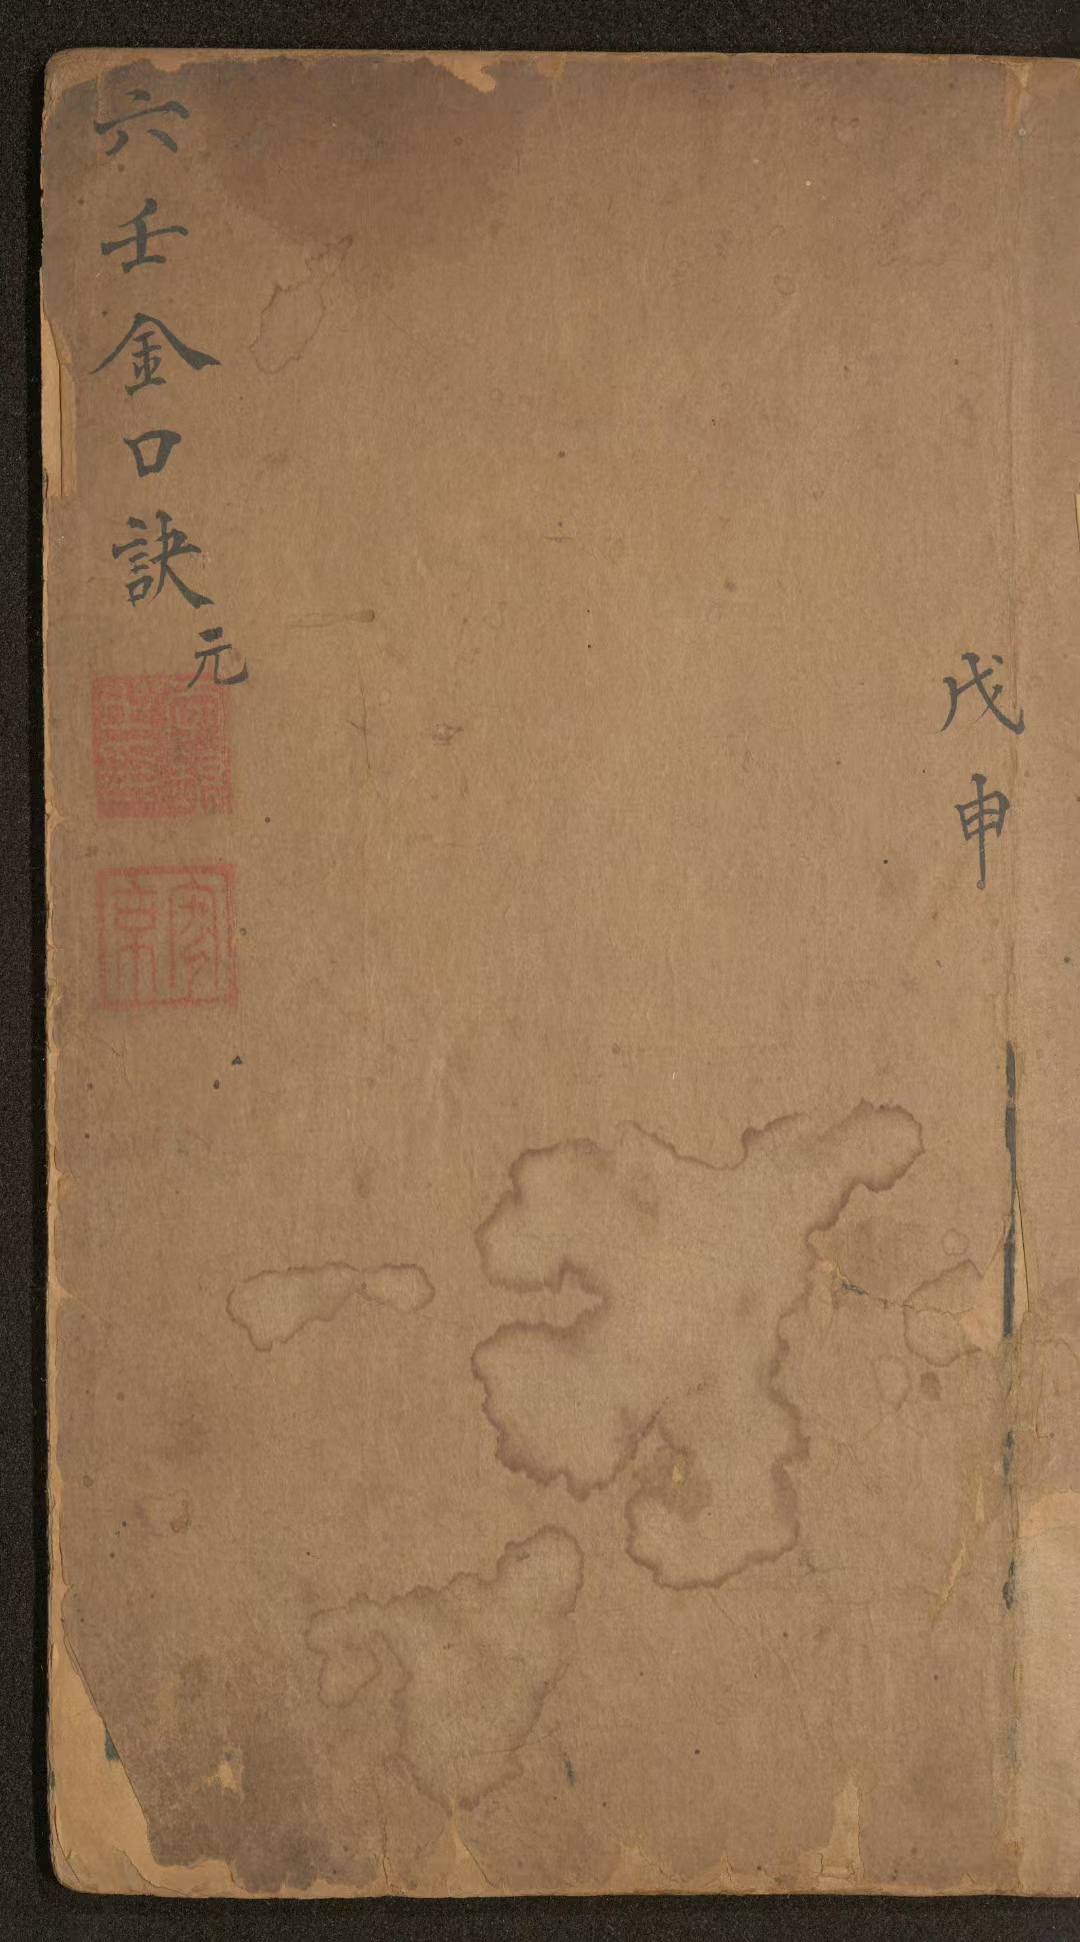 戊申
六壬金口訣元